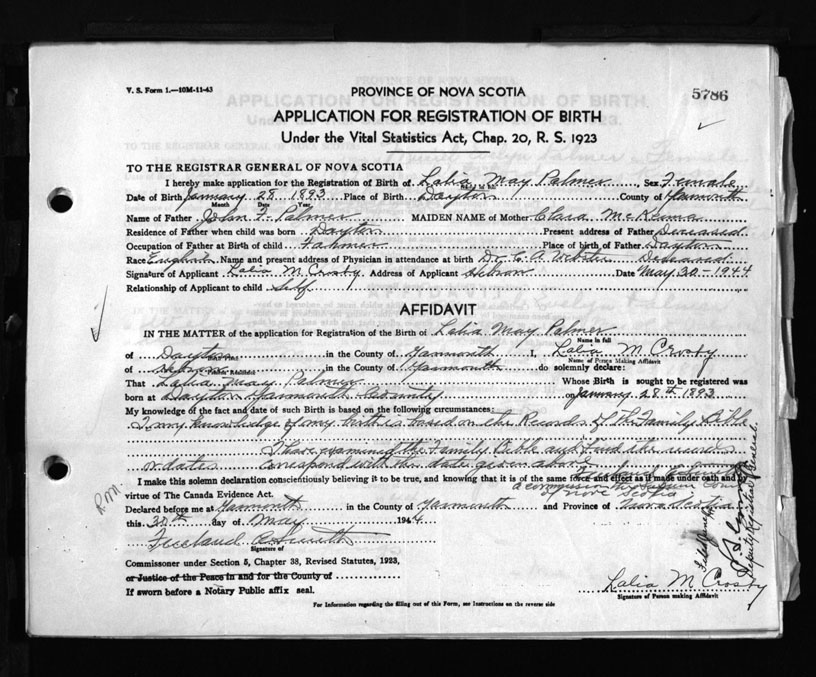 V. S. Form 1.—10M-11-43
PROVINCE OF NOVA SCOTIA
5786
APPLICATION FOR REGISTRATION OF BIRTH
Under the Vital Statistics Act, Chap. 20, R. S. 1923
TO THE REGISTRAR GENERAL OF NOVA SCOTIA
I hereby make application for the Registration of Birth of Lalia May Palmer, Sex Female
Date of Birth January 28 1893 Place of Birth Dayton County of Yarmouth
Month Date Year
Name of Father John F. Palmer MAIDEN NAME of Mother Clara McKinna
Residence of Father when child was born Dayton Present address of Father Deceased
Occupation of Father at Birth of child Fahmer Place of birth of Father Dayton
Race English Name and present address of Physician in attendance at birth Dr. C. A. Webster Deceased
Signature of Applicant Lalia M. Crosby Address of Applicant Hebron Date May 30 - 1944
Relationship of Applicant to child Self
AFFIDAVIT
IN THE MATTER of the application for Registration of the Birth of Lalia May Palmer
Name in full
of Dayton in the County of Yarmouth I, Lalia M Crosby
Name of Person Making Affidavit
of Hebron in the County of Yarmouth do solemnly declare:
That Lalia May Palmer Whose Birth is sought to be registered was
born at Dayton Yarmouth County on January 28th 1893
My knowledge of the fact and date of such Birth is based on the following circumstances:
To my knowledge of my birth is based on the Records of The Family Bible
I have examined the Family Bible and find the records
or dates correspond with the dates given above
I make this solemn declaration conscientiously believing it to be true, and knowing that it is of the same force and effect as if made under oath and
a commissioner Supreme Court
virtue of The Canada Evidence Act.
of Nova Scotia
Declared before me at Yarmouth in the County of Yarmouth and Province of Nova Scotia
this 30th day of May 1944
Freeland
Signature of
Commissioner under Section 5, Chapter 38, Revised Statutes, 1923,
or Justice of the Peace in and for the County of
If sworn before a Notary Public affix seal.
Lalia M Crosby
Signature of Person making Affidavit
Deputy Registrar General
For Information regarding the filling out of this Form, see Instructions on the reverse side